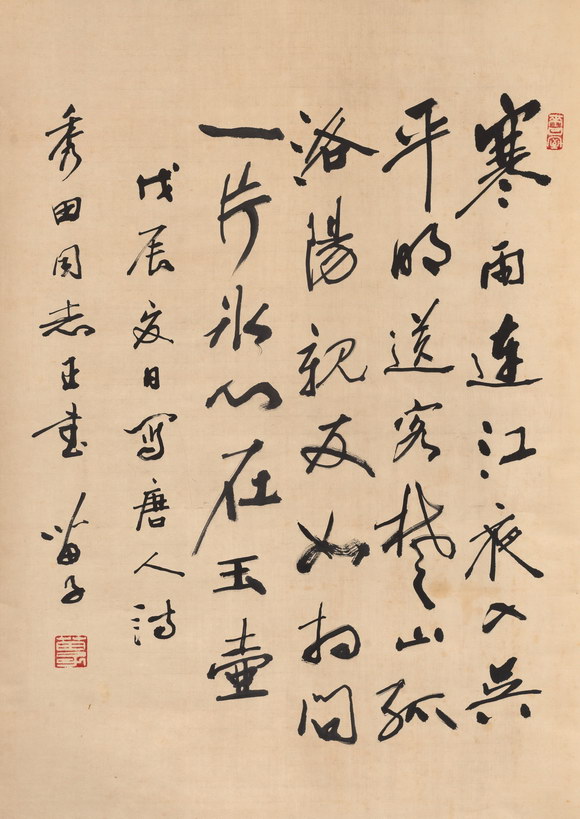 寒雨連江夜入吳
平明送客楚山孤
洛陽親友如相問
一片冰心在玉壺
戊辰夏日寫唐人詩
秀田同志正書 苗子